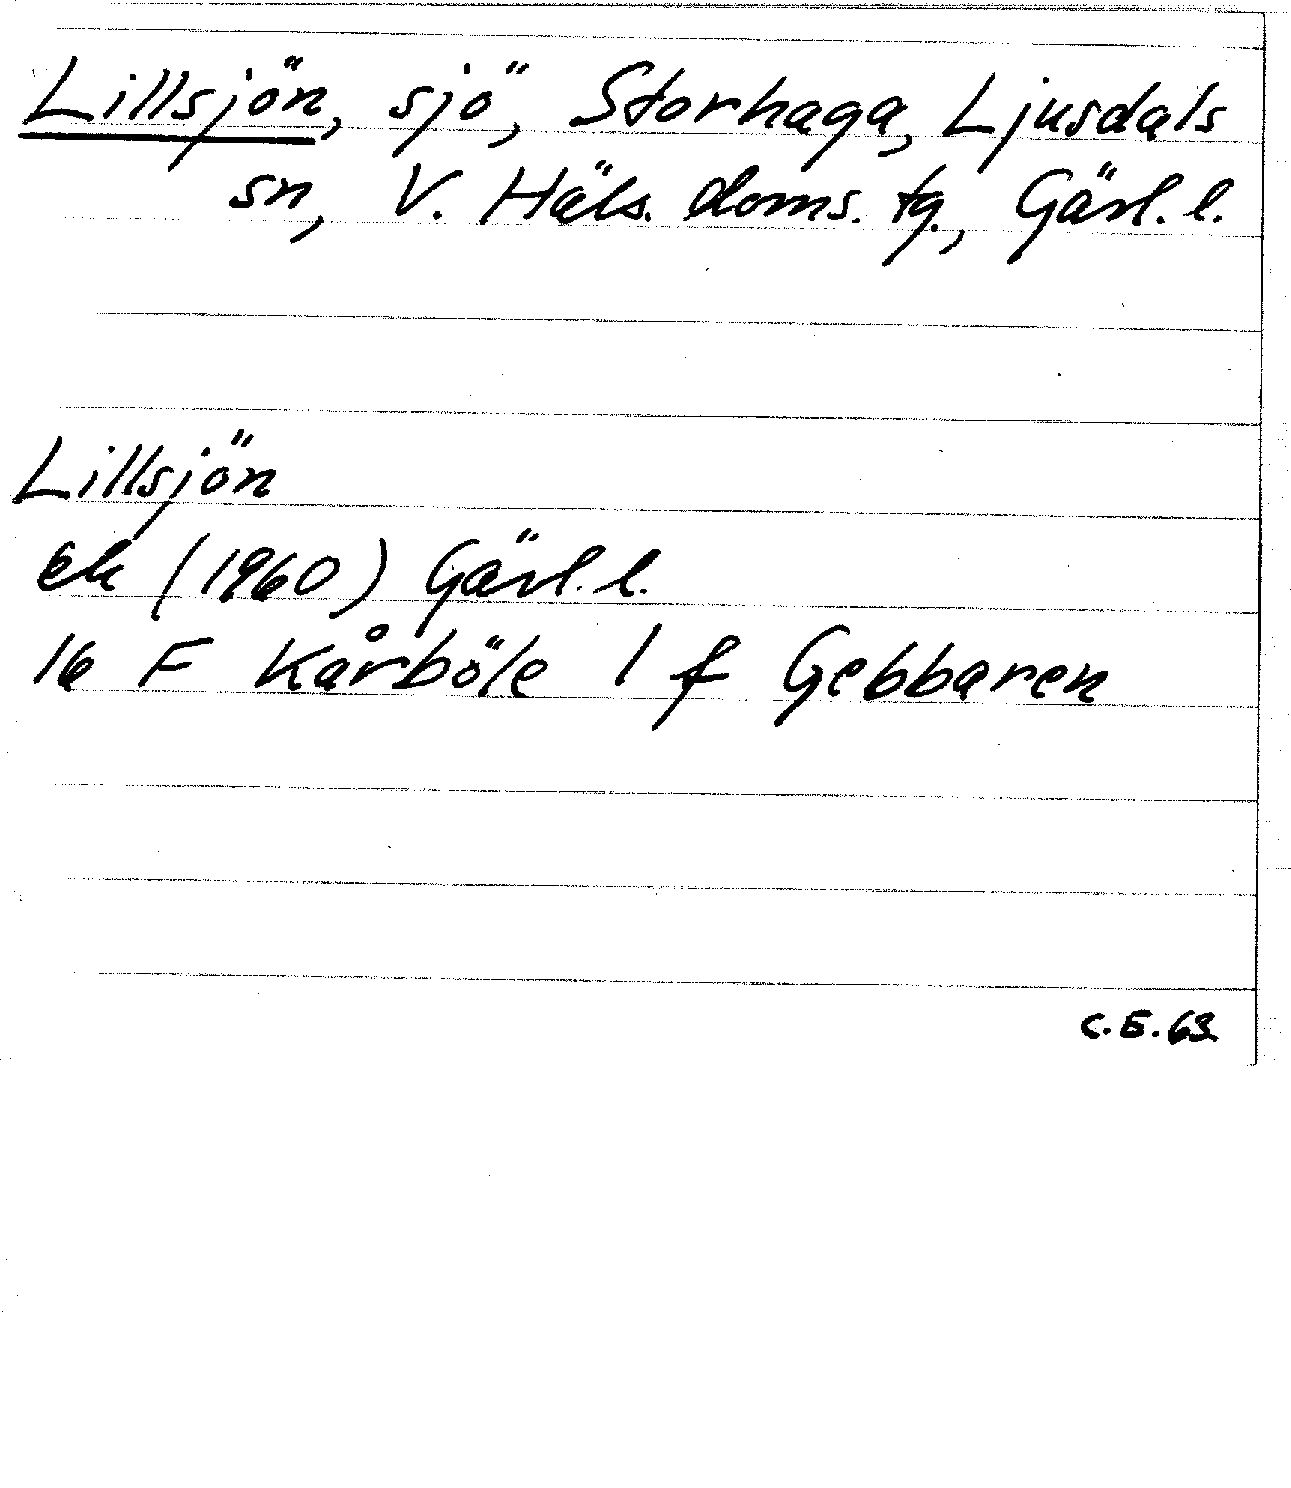 Lillsjön, sjö, Storhaga, Ljusdals
sn, V. Häls. doms. tg., Gävl. l.
Lillsjön
ek (1960) Gävl. l.
16 F Kårböle 1 f Gebbaren
C.E.63